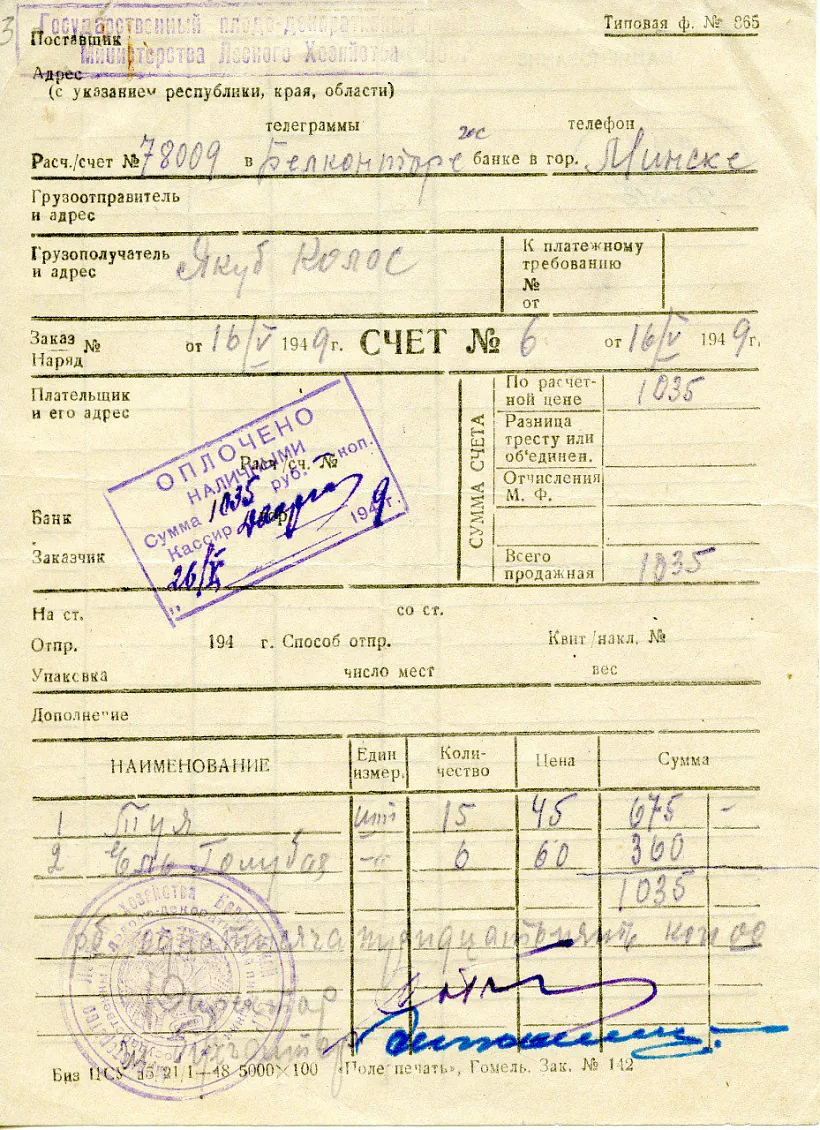 Государственный плодо-декорати
Министерства Лесного Хозяйства
Типовая ф. № 865
Поставщик
Адрес
(с указанием республики, края, области)
телеграммы телефон
Расч./счет № 78009 в Белконторе гос банке в гор. Минске
Грузоотправитель
и адрес
Грузополучатель
и адрес
Якуб Колос
К платежному
требованию
№
от
Заказ №
Наряд
от 16/V 1949 г. СЧЕТ № 6 от 16/V 1949 г.
Плательщик
и его адрес
Расч/сч. №
Банк
гор.
Заказчик
ОПЛОЧЕНО
НАЛИЧНЫМИ
Сумма 1035 руб. — коп.
Кассир
26/V 1949 г.
СУММА СЧЕТА
По расчет-
ной цене 1035
Разница
тресту или
об'единен.
Отчисления
М. Ф.
Всего
продажная 1035
На ст. со ст.
Отпр. 194 г. Способ отпр. Квит/накл. №
Упаковка число мест вес
Дополнение
НАИМЕНОВАНИЕ Един измер. Коли-чество Цена Сумма
1 Туя шт 15 45 675 -
2 Ель Голубая -"- 6 60 360
1035
рб. одна тысяча тридцать пять коп 00
Директор
Бухгалтер
Биз ЦСУ 15/21/1—48 5000×100 «Полеспечать», Гомель. Зак. № 142